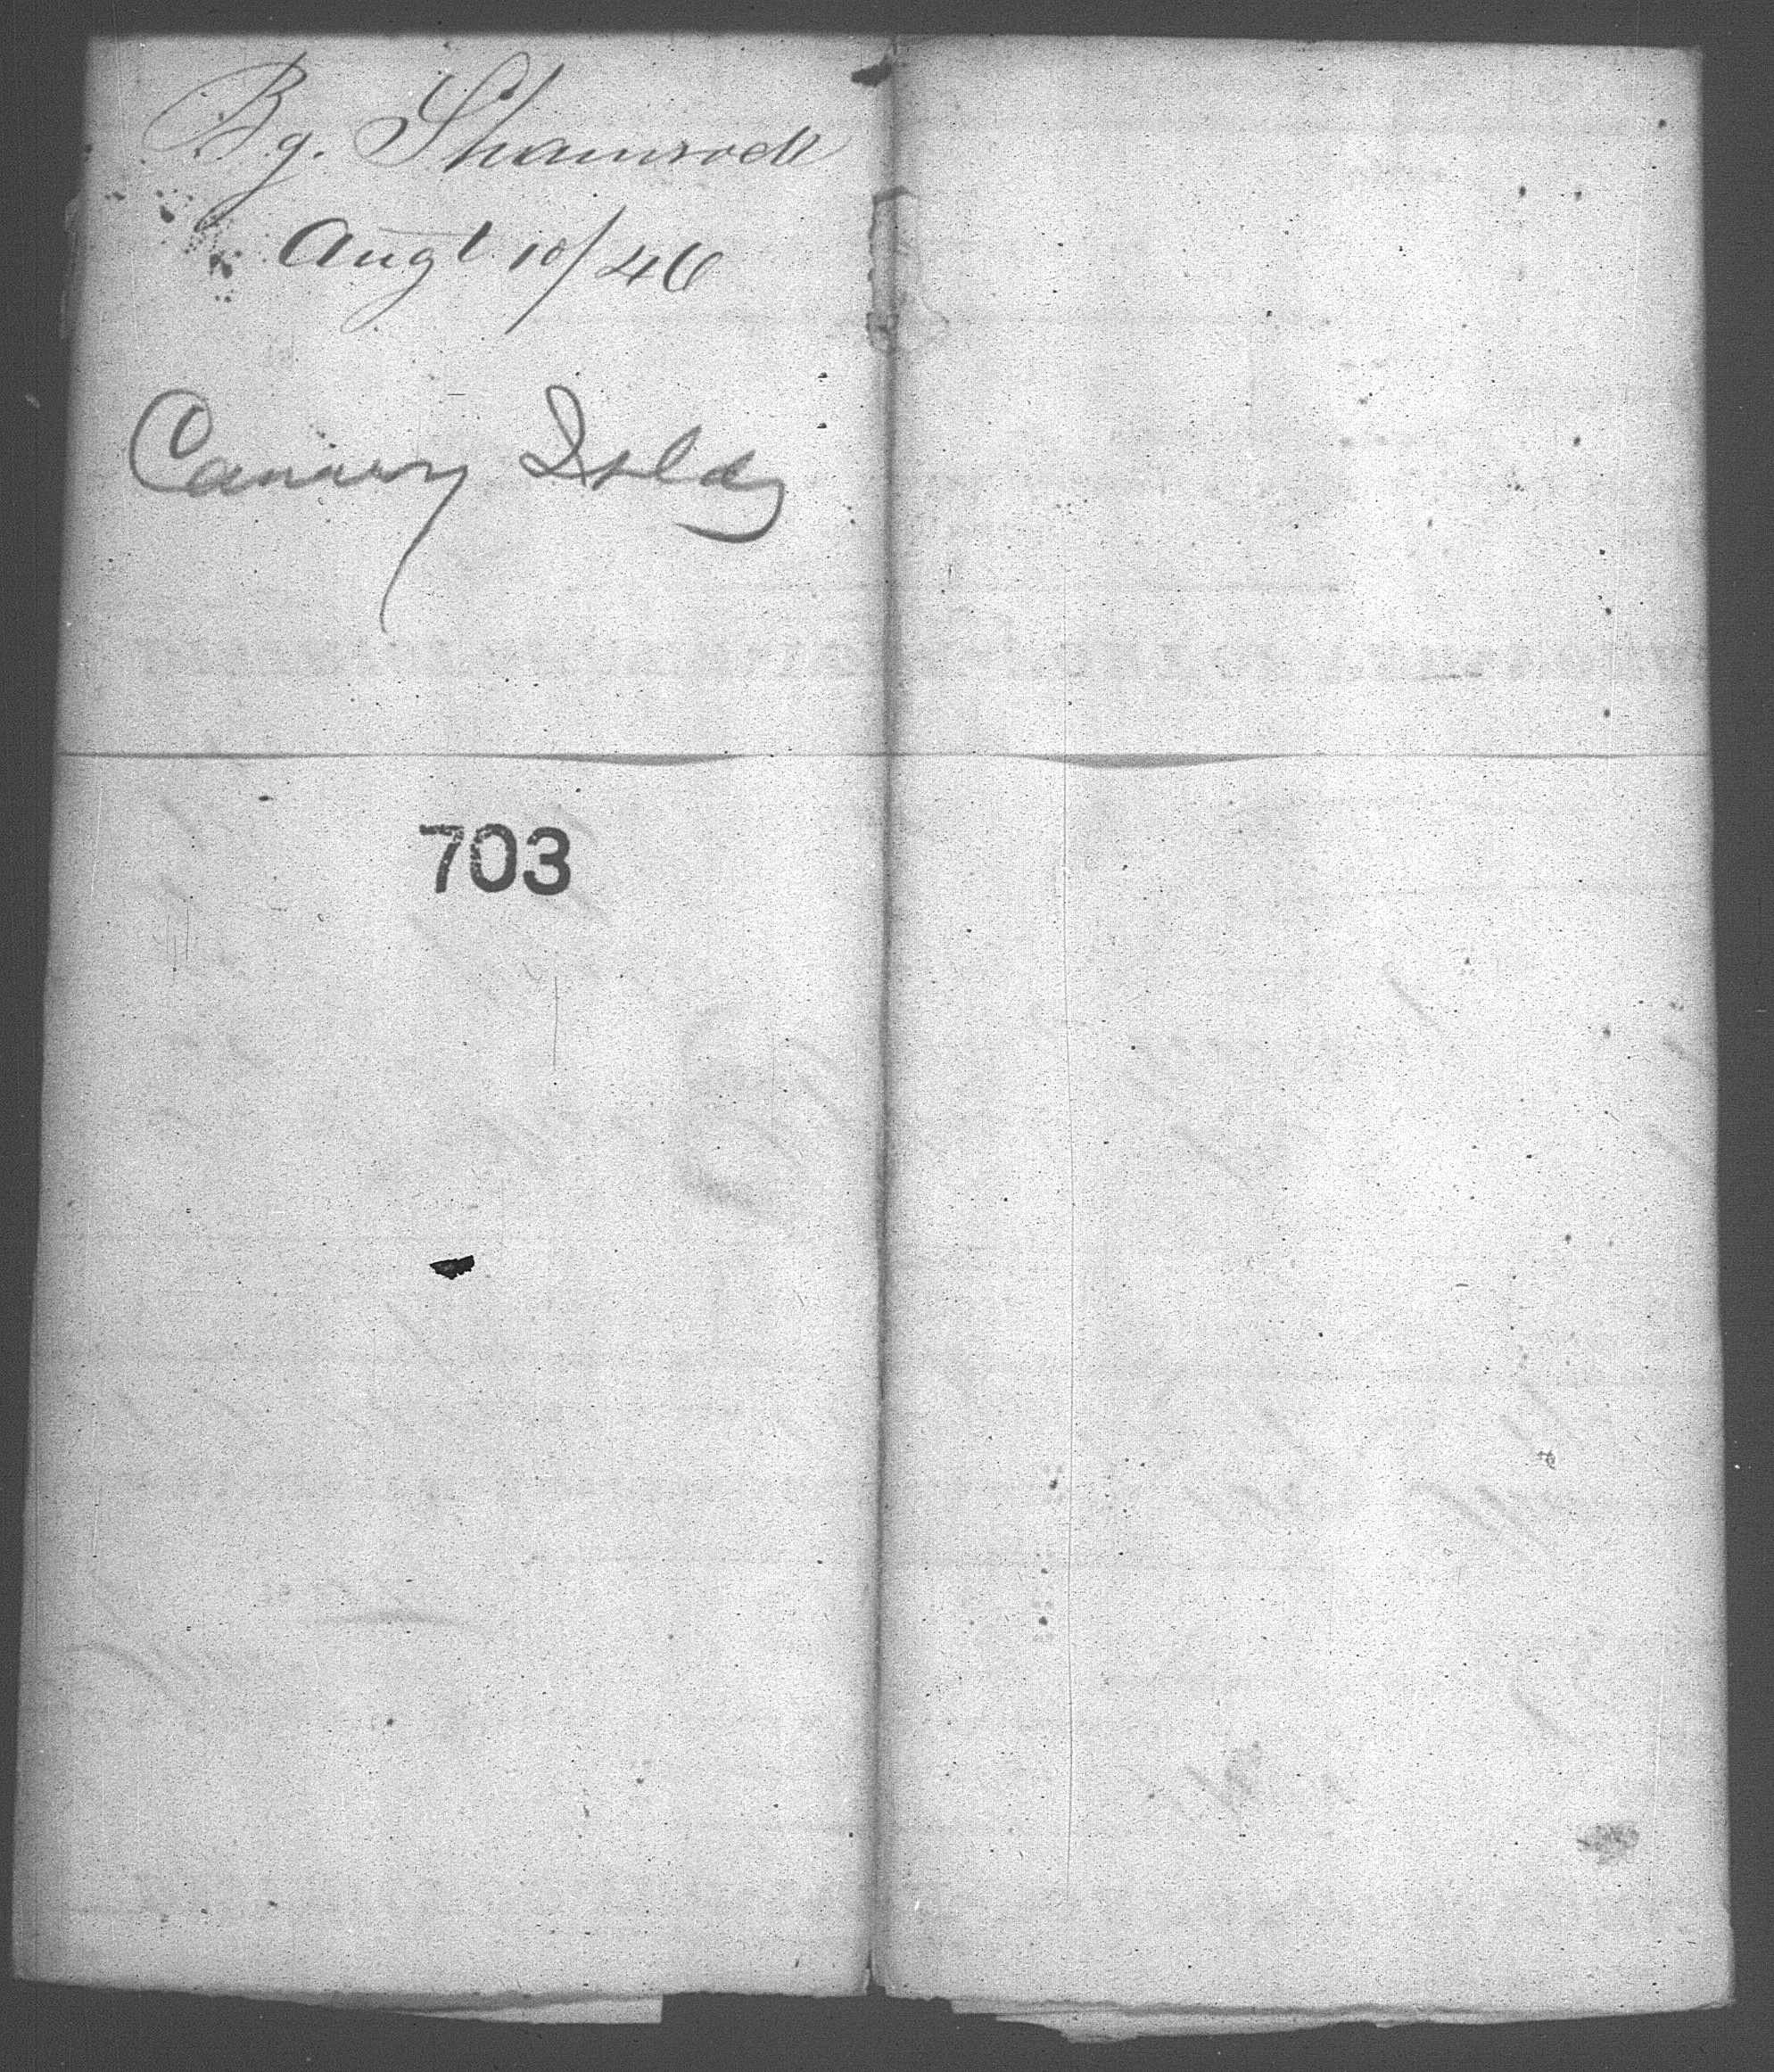 Bg. Shamrock
Augt 10/46
Canary Islds
703